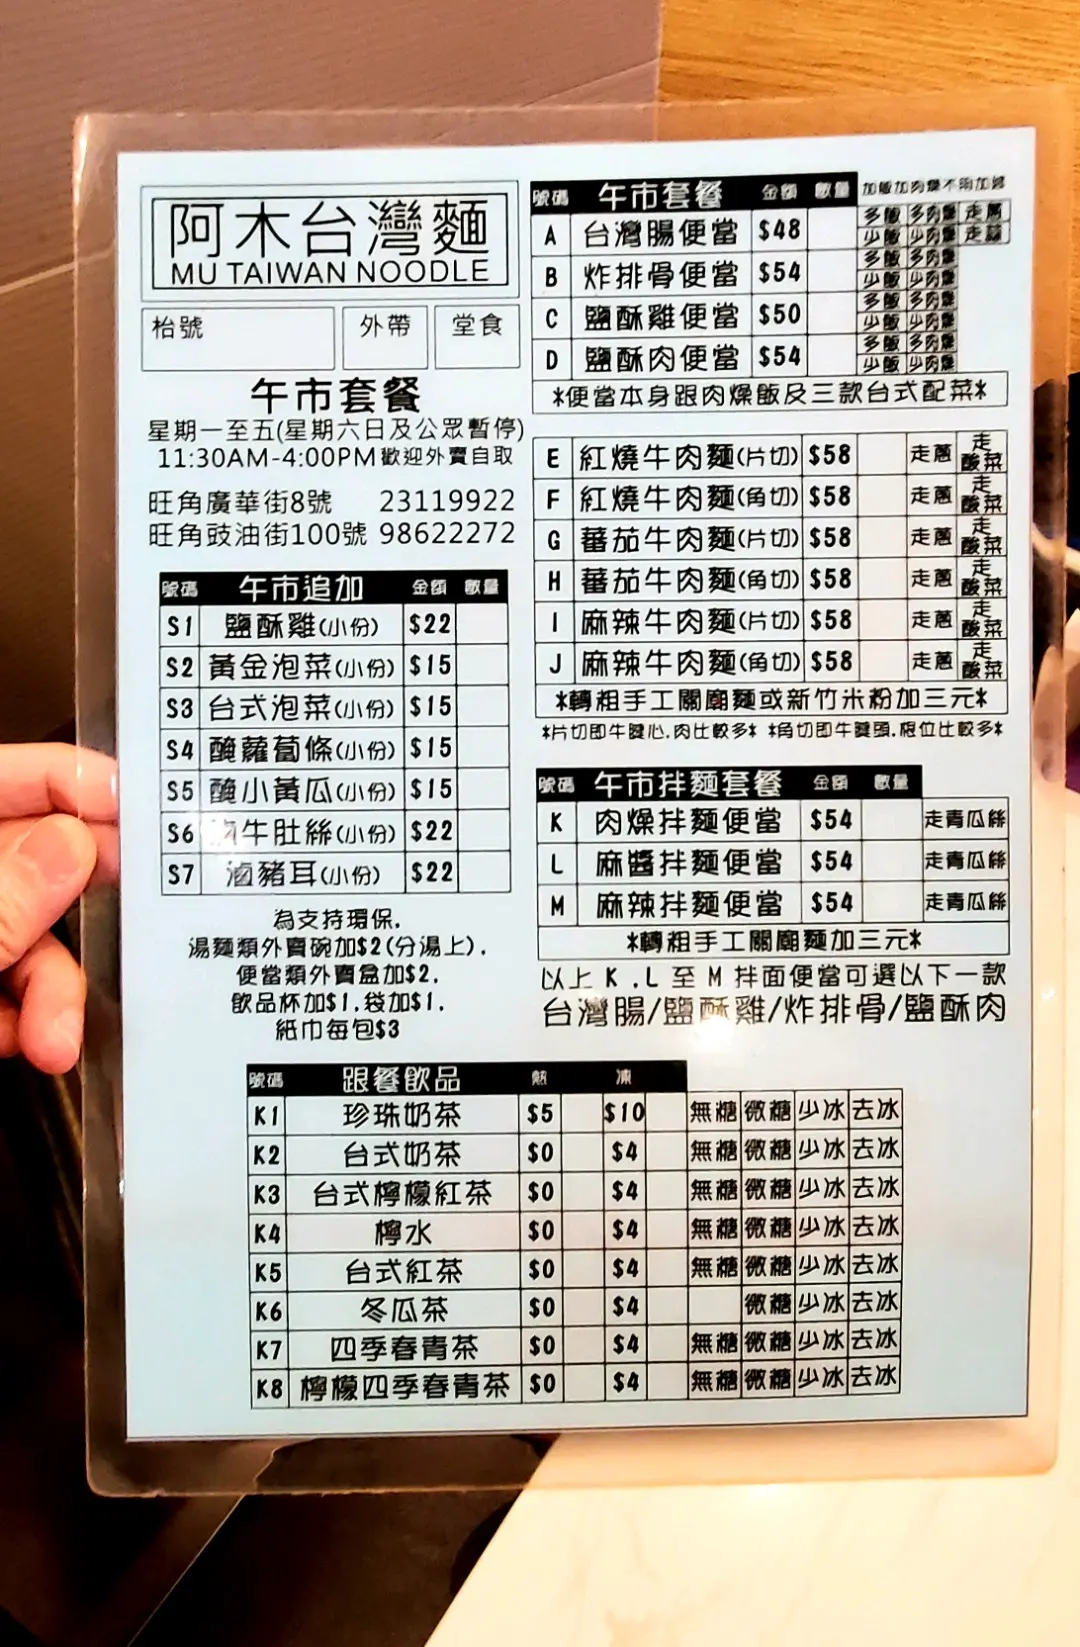 阿木台灣麵
MU TAIWAN NOODLE
枱號
外帶
堂食
午市套餐
星期一至五(星期六日及公眾暫停)
11:30AM-4:00PM歡迎外賣自取
旺角廣華街8號 23119922
旺角豉油街100號 98622272
號碼 午市追加 金額 數量
S1 鹽酥雞(小份) $22
S2 黃金泡菜(小份) $15
S3 台式泡菜(小份) $15
S4 醃蘿蔔條(小份) $15
S5 醃小黃瓜(小份) $15
S6 牛肚絲(小份) $22
S7 滷豬耳(小份) $22
為支持環保.
湯麵類外賣碗加$2(分湯上).
便當類外賣盒加$2.
飲品杯加$1.袋加$1.
紙巾每包$3
號碼 午市套餐 金額 數量 加飯加肉燥不用加錢
A 台灣腸便當 $48 多飯 多肉燥 走蔥
少飯 少肉燥 走蒜
B 炸排骨便當 $54 多飯 多肉燥
少飯 少肉燥
C 鹽酥雞便當 $50 多飯 多肉燥
少飯 少肉燥
D 鹽酥肉便當 $54 多飯 多肉燥
少飯 少肉燥
*便當本身跟肉燥飯及三款台式配菜*
E 紅燒牛肉麵(片切) $58 走蔥 走酸菜
F 紅燒牛肉麵(角切) $58 走蔥 走酸菜
G 蕃茄牛肉麵(片切) $58 走蔥 走酸菜
H 蕃茄牛肉麵(角切) $58 走蔥 走酸菜
I 麻辣牛肉麵(片切) $58 走蔥 走酸菜
J 麻辣牛肉麵(角切) $58 走蔥 走酸菜
*轉粗手工關廟麵或新竹米粉加三元*
*片切即牛𦟌心.肉比較多* *角切即牛𦟌頭.根位比較多*
號碼 午市拌麵套餐 金額 數量
K 肉燥拌麵便當 $54 走青瓜絲
L 麻醬拌麵便當 $54 走青瓜絲
M 麻辣拌麵便當 $54 走青瓜絲
*轉粗手工關廟麵加三元*
以上 K .L 至 M 拌面便當可選以下一款
台灣腸/鹽酥雞/炸排骨/鹽酥肉
號碼 跟餐飲品 熱 凍
K1 珍珠奶茶 $5 $10 無糖 微糖 少冰 去冰
K2 台式奶茶 $0 $4 無糖 微糖 少冰 去冰
K3 台式檸檬紅茶 $0 $4 無糖 微糖 少冰 去冰
K4 檸水 $0 $4 無糖 微糖 少冰 去冰
K5 台式紅茶 $0 $4 無糖 微糖 少冰 去冰
K6 冬瓜茶 $0 $4 微糖 少冰 去冰
K7 四季春青茶 $0 $4 無糖 微糖 少冰 去冰
K8 檸檬四季春青茶 $0 $4 無糖 微糖 少冰 去冰